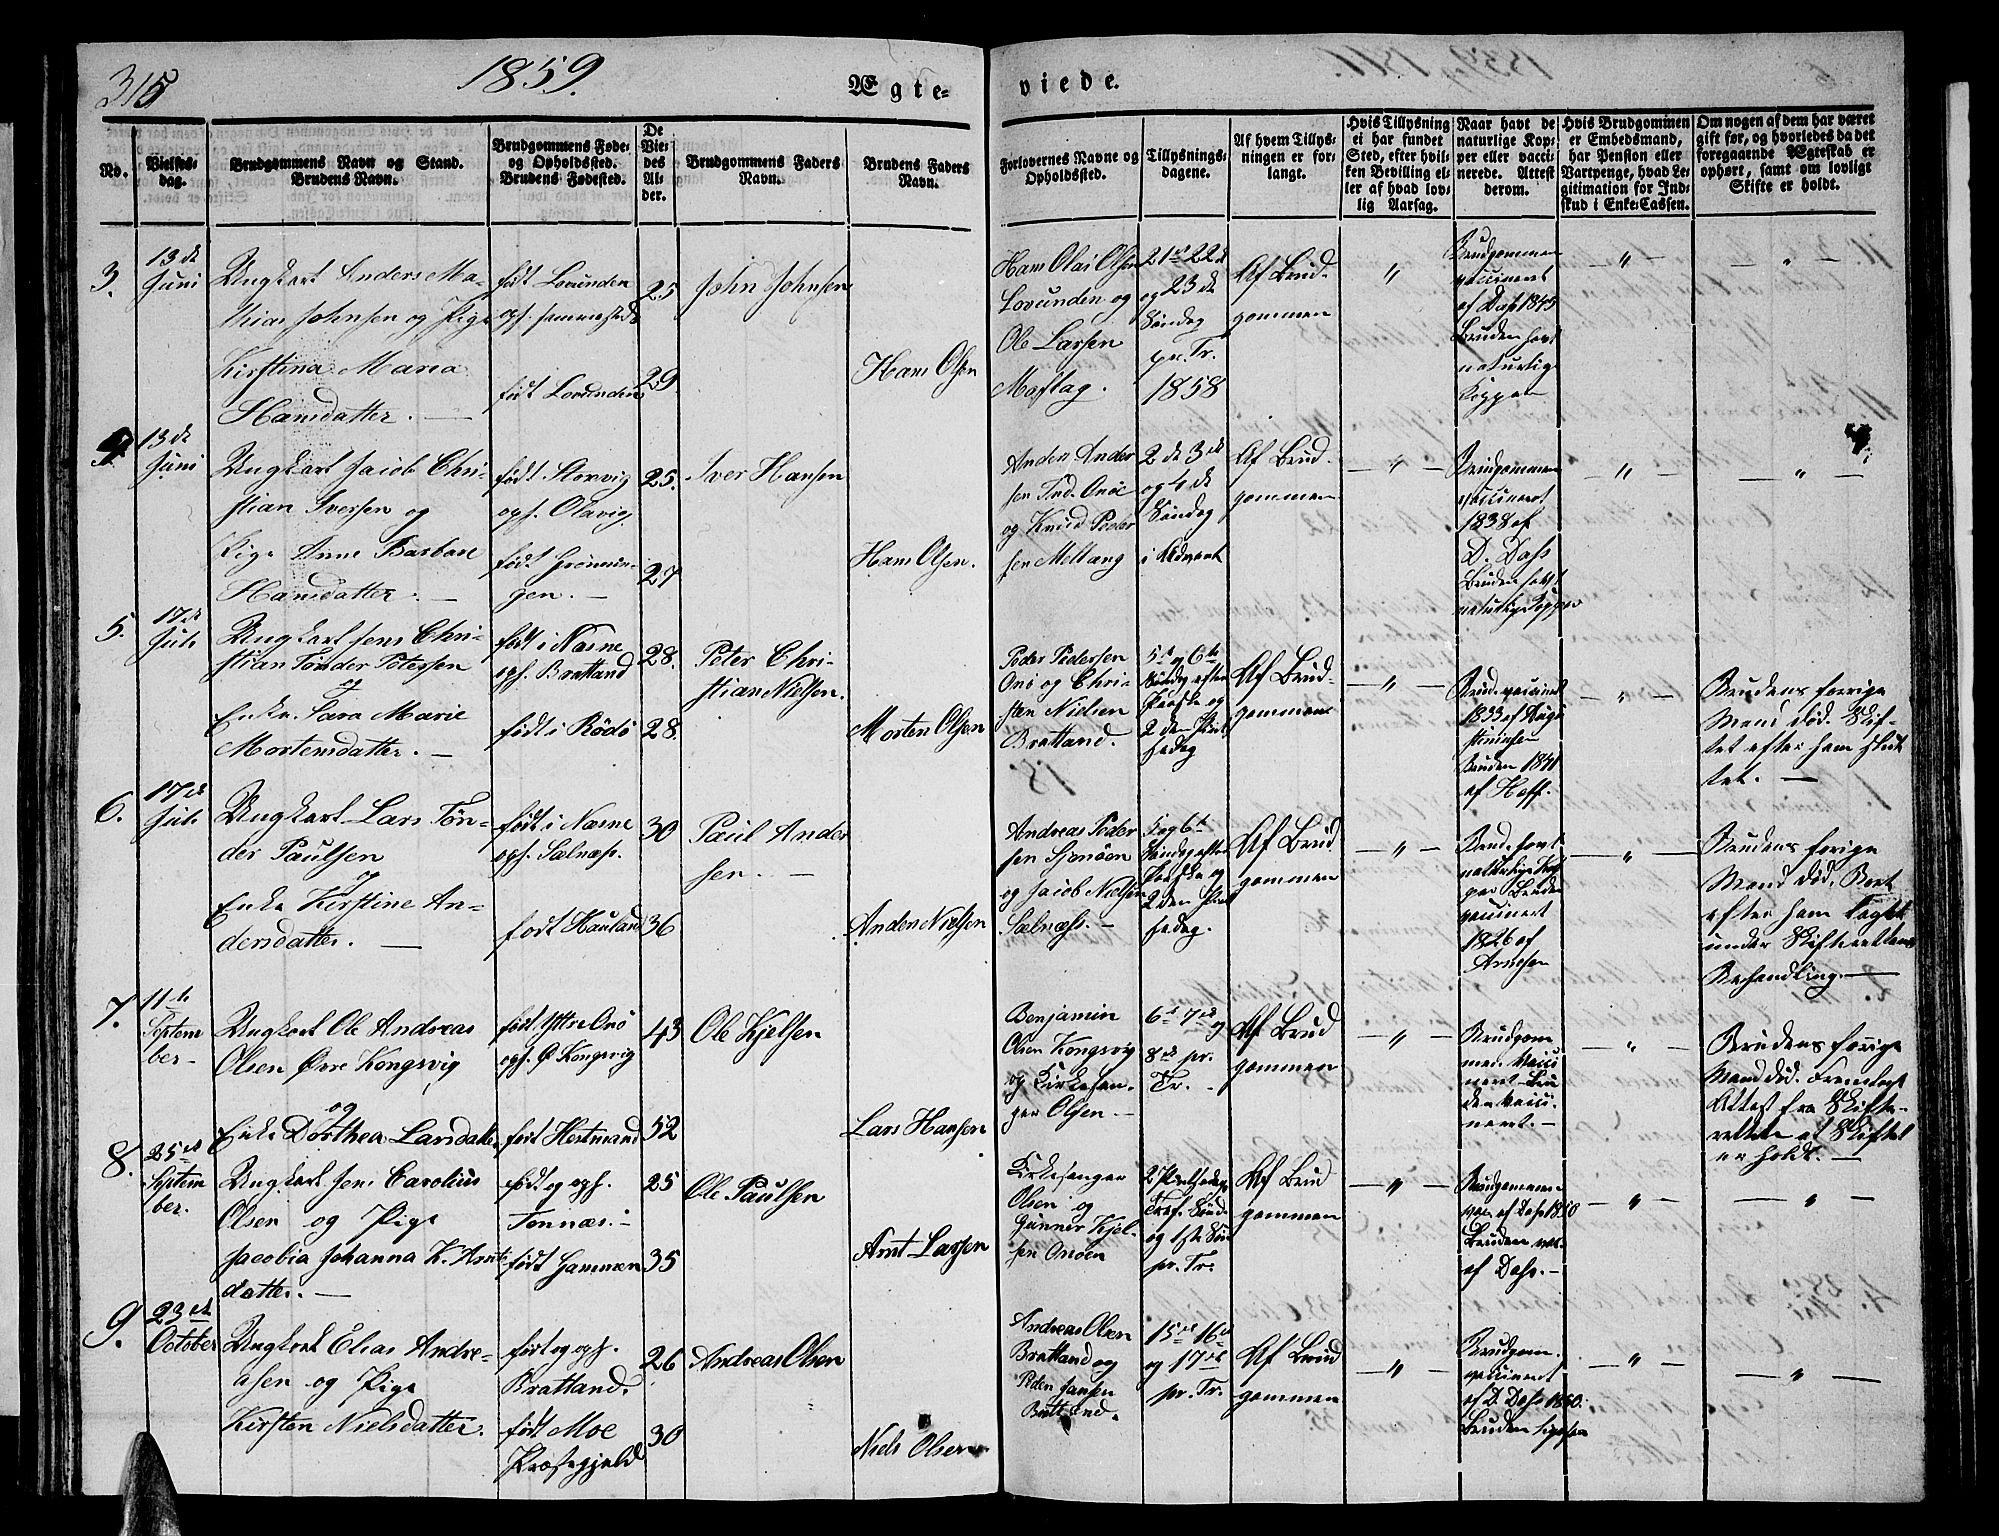 315
1859.
Ægte-
viede.
No.
Vielses-
dag.
Brudgommens Navn og Stand.
Brudens Navn.
Brudgommens Føde-
og Opholdssted.
Brudens Fødested.
De
Vie-
des
Al-
der.
Brudgommens Faders
Navn.
Brudens Faders
Navn.
Forlovernes Navne og
Opholdssted.
Tillysnings-
dagene.
Af hvem Tillys-
ningen er for-
langt.
Hvis Tillysning
ei har fundet
Sted, efter hvil-
ken Bevilling el-
ler af hvad lov-
lig Aarsag.
Naar havt de
naturlige Kop-
per eller vacci-
nerede. Attest
derom.
Hvis Brudgommen
er Embedsmand,
har Pension eller
Vartpenge, hvad Le-
gitimation for Ind-
skud i Enke-Cassen.
Om nogen af dem har været
gift før, og hvorledes da det
foregaaende Ægteskab er
ophørt, samt om lovligt
Skifte er holdt.
3.
13de
Juni
Ungkarl Anders Ma-
thias Johnsen og Pige
Kirstina Maria
Hansdatter. —
født Lovunden
oph. sammesteds
født Lovunden
25
29
John Johnsen
Hans Olsen
Hans Olai Olsen
Lovunden og
Ole Larsen
Maftag.
21de 22de
og 23de
Søndag
pr. Tr.
1858
Af Brud-
gommen
"
Brudgommen
vaccineret
af Dass 1845
Bruden havt
naturlige
Kopper
—"—
"
4
13de
Juni
Ungkarl Jacob Chri-
stian Iversen og
Pige Anne Barbara
Hansdatter. —
født Storvig
oph. Olavig.
født Grønnin-
gen. —
25.
27
Iver Hansen
Hans Olsen.
Anders Ander
sen Ind. Onøe
og Knud Peder
sen Meltæng
2de 3de
og 4de
Søndag
i Advent
Af Brud-
gommen
—"—
Brudgommen
vaccineret
1838 af
D. Dass
Bruden havt
naturlige Kopper
—"—
—"—
5.
17de
Juli
Ungkarl Jens Chri-
stian Tønder Petersen
og
Enke Sara Marie
Mortensdatter. —
født i Næsne
oph. Bratland
født i Rødø
28.
28.
Peter Chri-
stian Nielsen.
Morten Olsen
Peder Pedersen
Onø og Chri-
sten Nielsen
Bratland.
5te og 6te
Søndag efter
Paaske og
2den Pint
sedag.
Af Brud-
gommen
—"—
Brud. vaccineret
1833 af Augu
stinussen
Bruden 1841
af Hoff.
—"—
Brudens forrige
Mand død. Skif-
tet efter ham slut
tet. —
6.
17de
Juli
Ungkarl Lars Tøn-
der Paulsen
og
Enke Kirstine An-
dersdatter. —
født i Næsne
oph. Sælnæs.
født Hauland
30
36
Paul Ander
sen. —
Anders Nielsen
Andreas Peder
sen Sjonøen
og Jacob Nielsen
Sælnæs. —
5 og 6te
Søndag efter
Paaske og
2den Pint
sedag.
Af Brud
gommen
—"—
Brud. havt
naturlige Kop
per Bruden
vaccineret
1826 af
Arnesen
—"—
Brudens forrige
Mand død. Boet
efter ham taget
under Skifterettens
Behandling. —
7.
11te
Septem
ber.
Ungkarl Ole Andreas
Olsen Øvre Kongsvig
og
Enke Dorthea Larsdatter
født Yttre Onø
oph. Ø. Kongsvig
født Hestmand
43
52
Ole Kjelsen
Lars Hansen
Benjamin
Olsen Kongsvig
og Kirkesan-
ger Olsen. —
6te 7de og
8de pr.
Tr. —
Af Brud
gommen
—"—
Brudgom-
men vacci
neret Bru
den vacci-
neret. —
—"—
Brudens forrige
Mand død. Fremlagt
Attest fra Skifte-
retten at Skiftet
er holdt. —
8.
25de
Septem
ber.
Ungkarl Jens Carolius
Olsen og Pige
Jacobia Johanna K. Arnts
datter. —
født og oph.
Tonnæs. —
født Hammen
25
35
Ole Paulsen
Arnt Larsen
Kirkesanger
Olsen og
Gunner Kjel-
sen Onøen
og 1ste Sønd
pr. Tr.
Af Brud
gommen
—"—
Brudgommen
vac. af Dass 1850
Bruden vac.
af Dass. —
—"—
"
9.
23de
October
Ungkarl Elias Andre-
asen og Pige
Kirsten Nielsdatter.
født og oph.
Bratland.
født Moe
Præstegjeld
26
30
Andreas Olsen
Niels Olsen
Andreas Olsen
Bratland og
Peder Jansen
Bratland.
15de 16de
og 17de
pr. Tr.
Af Brud
gommen
—"—
Brudgom.
vaccineret
af D. Dass 1850.
Bruden ligesaa
—"—
—"—